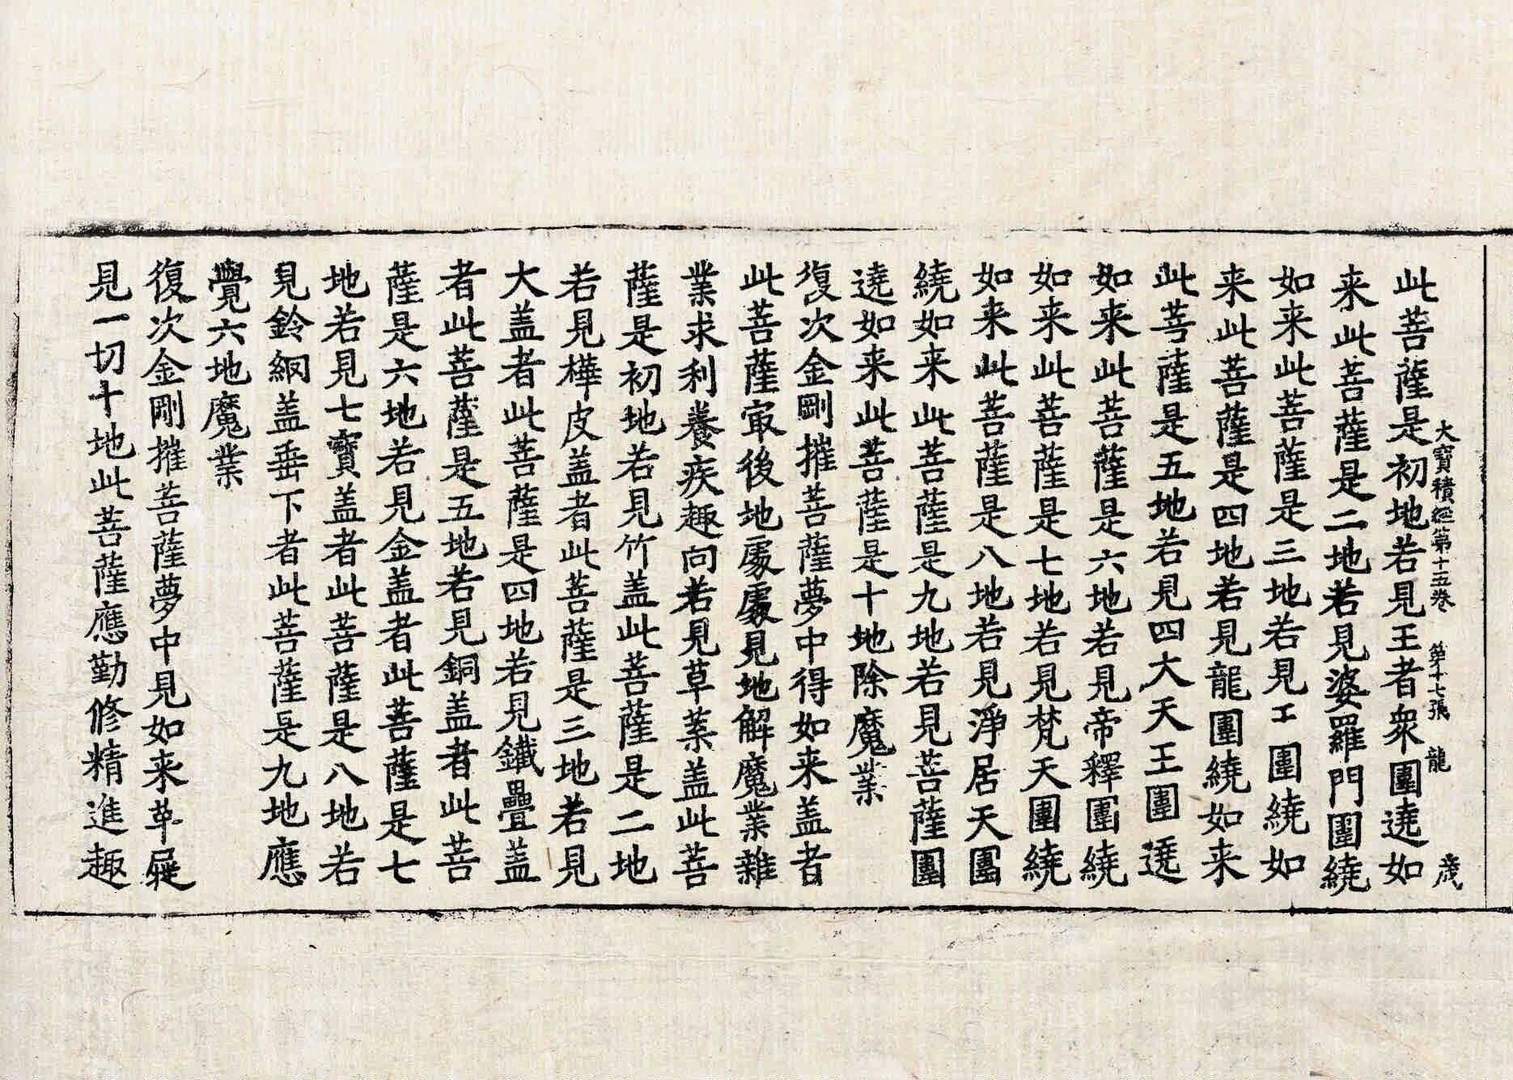 大寶積經第十五卷 第十七張 龍 歲
此菩薩是初地若見王者衆圍遶如
来此菩薩是二地若見婆羅門圍繞
如来此菩薩是三地若見工圍繞如
来此菩薩是四地若見龍圍繞如来
此菩薩是五地若見四大天王圍遶
如来此菩薩是六地若見帝釋圍繞
如来此菩薩是七地若見梵天圍繞
如来此菩薩是八地若見淨居天圍
繞如来此菩薩是九地若見菩薩圍
遶如来此菩薩是十地除魔業
復次金剛摧菩薩夢中得如来盖者
此菩薩㝡後地處處見地解魔業雜
業求利養疾趣向若見草葉盖此菩
薩是初地若見竹盖此菩薩是二地
若見樺皮盖者此菩薩是三地若見
大盖者此菩薩是四地若見鐵疊盖
者此菩薩是五地若見銅盖者此菩
薩是六地若見金盖者此菩薩是七
地若見七寶盖者此菩薩是八地若
見鈴網盖垂下者此菩薩是九地應
覺六地魔業
復次金剛摧菩薩夢中見如来革屣
見一切十地此菩薩應勤修精進趣